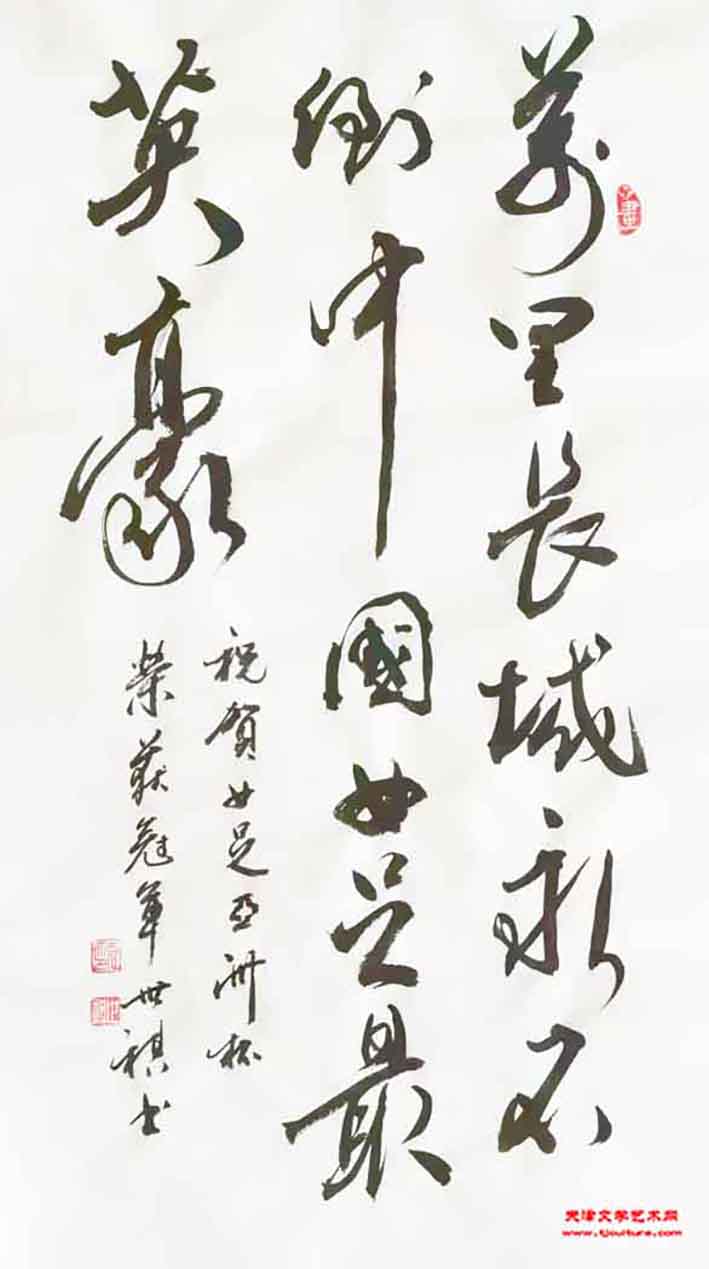 萬里長城永不
倒中國女足最
英豪
祝賀女足亞洲杯
榮獲冠軍世祺书
天津文学艺术网
www.tjculture.com